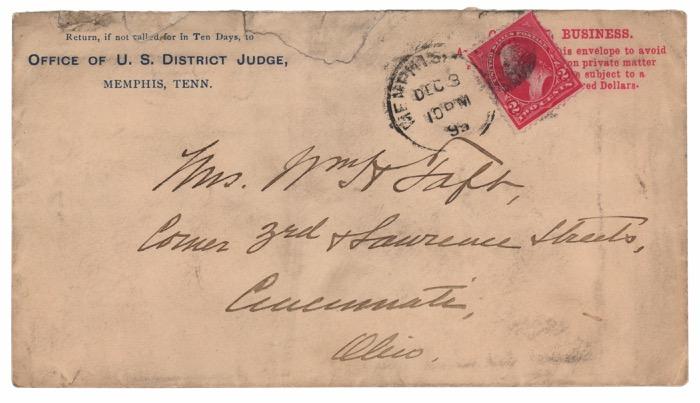 Return, if not called for in Ten Days, to
OFFICE OF U. S. DISTRICT JUDGE,
MEMPHIS, TENN.
BUSINESS.
this envelope to avoid
on private matter
subject to a
Dollars.
MEMPHIS,
DEC 3
10 PM
UNITED STATES POSTAGE
2 2
TWO CENTS
Mrs. Wm H Taft,
Corner 3rd & Lawrence Streets,
Cincinnati,
Ohio.